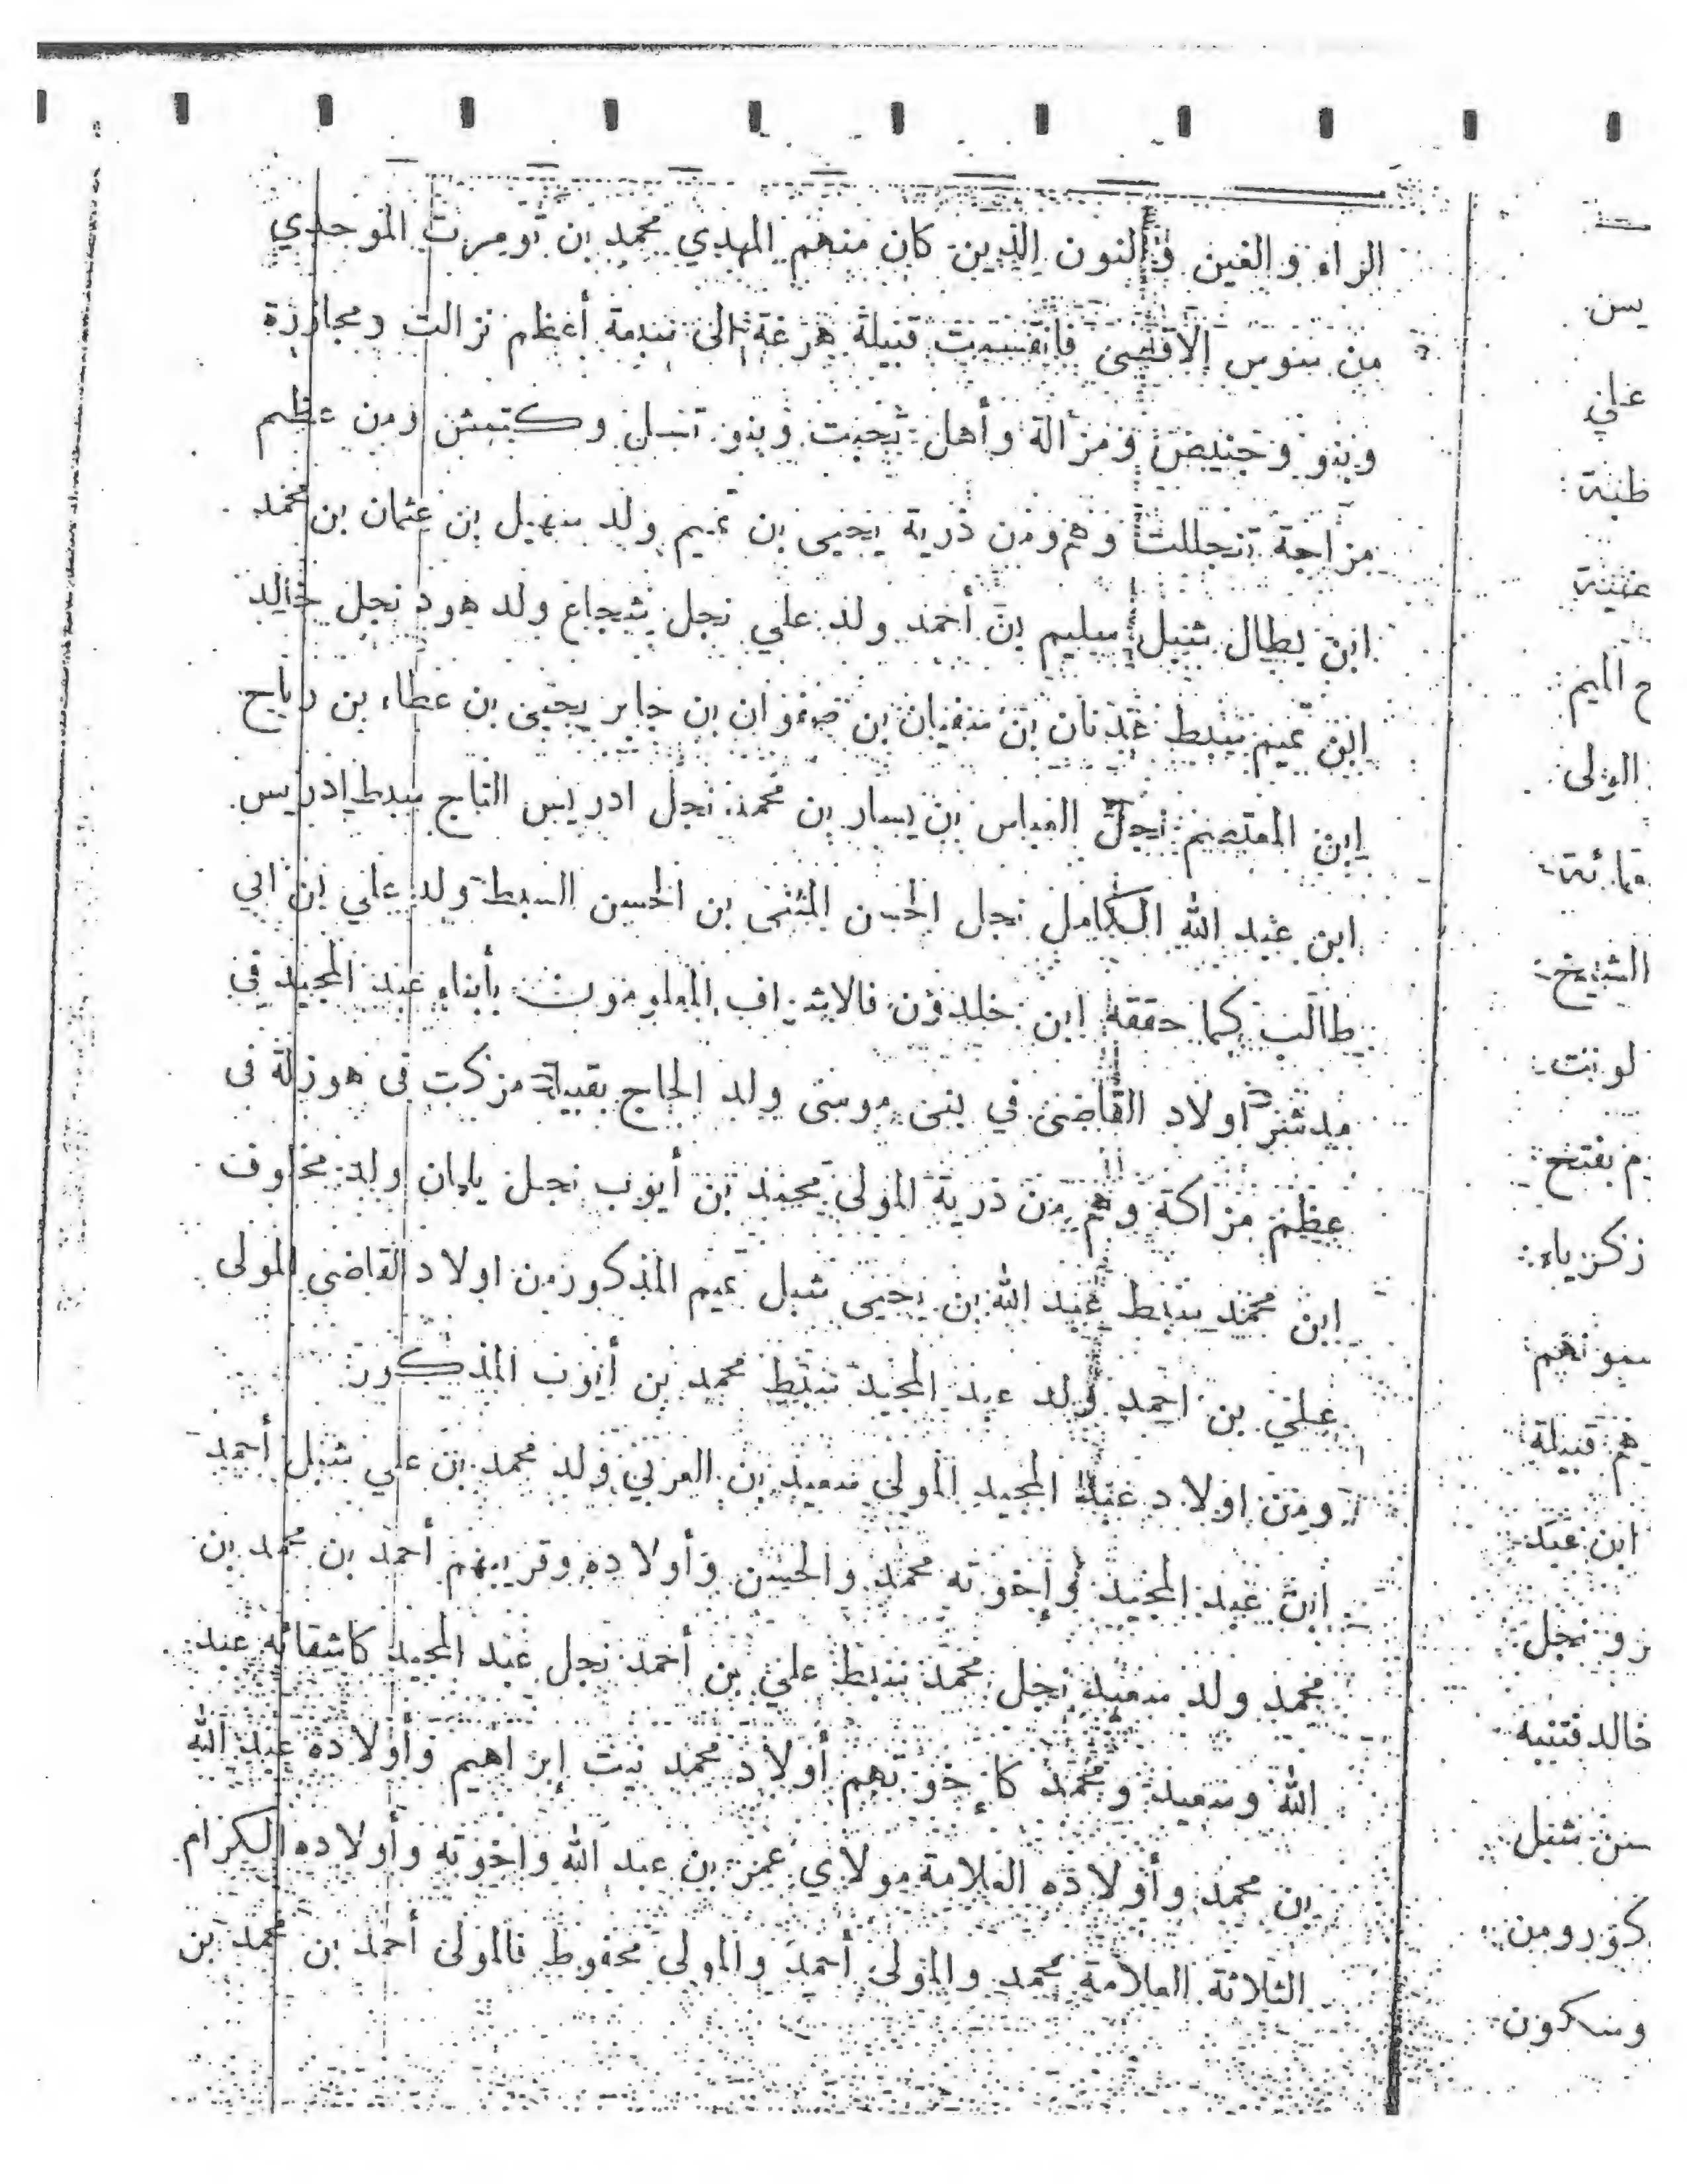 الراء والغين والنون الذين كان منهم المهدي محمد بن تومرت الموحدي
من سوس الاقصى فانقسمت قبيلة هرغة الى سبعة أعظم نزالت ومجازرة
وبنو وجنيض ومزالة وأهل وبنو ومن عظم
مزاجة وهم من ذرية يحيى بن تميم ولد سهيل بن عثمان بن محمد
ابن بطال شبل سليم بن أحمد ولد علي نجل شجاع ولد هود نجل خالد
ابن تميم سبط عدنان بن سفيان بن صفوان بن جابر يحيى بن عطاء بن رباح
ابن المعتصم نجل العباس بن يسار بن محمد نجل ادريس التاج سبط ادريس
ابن عبد الله الكامل نجل الحسن المثنى بن الحسن السبط ولد علي ابن ابي
طالب كما حققه ابن خلدون فالاشراف المعلومون بأبناء عبد المجيد في
مدشر اولاد القاضي في بني موسى ولد الحاج بقبيلة مزكت في هوزلة في
عظم مزاكة وهم من ذرية المولى محمد بن أيوب نجل يابان ولد مخلوف
ابن محمد سبط عبد الله بن يحيى شبل تميم المذكور من اولاد القاضي المولى
علي بن احمد ولد عبد المجيد سبط محمد بن أيوب المذكور
ومن اولاد عبد المجيد المولى سعيد بن العربي ولد محمد بن علي شبل أحمد
ابن عبد المجيد وإخوته محمد والحسن وأولاده وقريبهم أحمد بن محمد بن
محمد ولد سعيد نجل محمد سبط علي بن أحمد نجل عبد المجيد كاشقائه عبد
الله وسعيد ومحمد كإخوتهم أولاد محمد نيت إبراهيم وأولاده عبد الله
بن محمد وأولاده العلامة مولاي عمر بن عبد الله واخوته وأولاده الكرام
الثلاثة العلامة محمد والمولى أحمد والمولى محفوظ فالمولى أحمد بن محمد بن
يسن
علي
ح الميم
الولى
الشيخ
م بفتح
زكرياء
هم قبيلة
ابن عبد
رو نجل
خالد
سن شبل
كور ومن